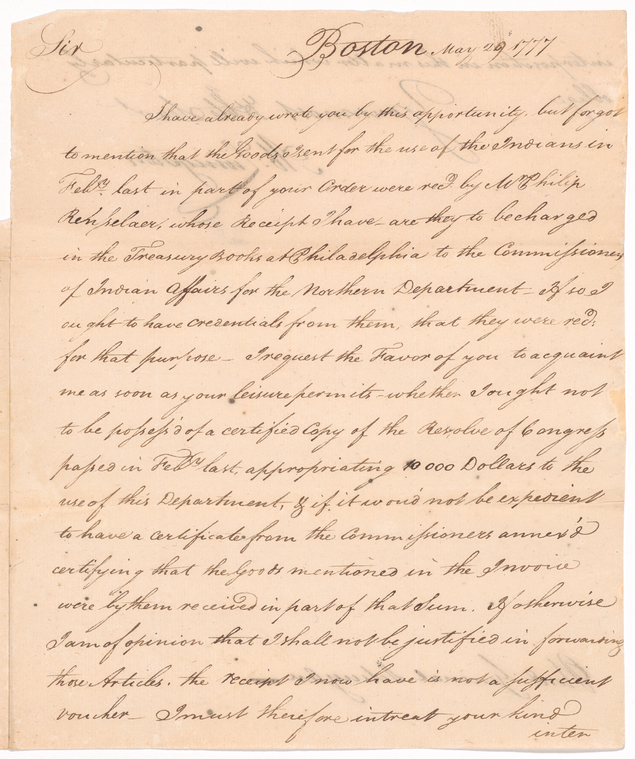 Sir Boston May 29th 1777
I have already wrote you by this opportunity. but forgot
to mention that the Goods I sent for the use of the Indians in
Feby. last in part of your Order were recd. by Mr Philip
Renselaer, whose Receipt I have - are they to be charged
in the Treasury Books at Philadelphia to the Commissioners
of Indian Affairs for the Northern Department - If so I
ought to have credentials from them, that they were recd.
for that purpose - I request the Favor of you to acquaint
me as soon as your leisure permits - whether I ought not
to be possess'd of a certified Copy of the Resolve of Congress
passed in Feby last, appropriating 10000 Dollars to the
use of this Department, & if it wou'd not be expedient
to have a certificate from the Commissioners annex'd
certifying that the Goods mentioned in the Invoice
were by them received in part of that Sum. If otherwise
I am of opinion that I shall not be justified in forwarding
those Articles. the receipt I now have is not a sufficient
voucher - I must therefore intreat your kind
inter